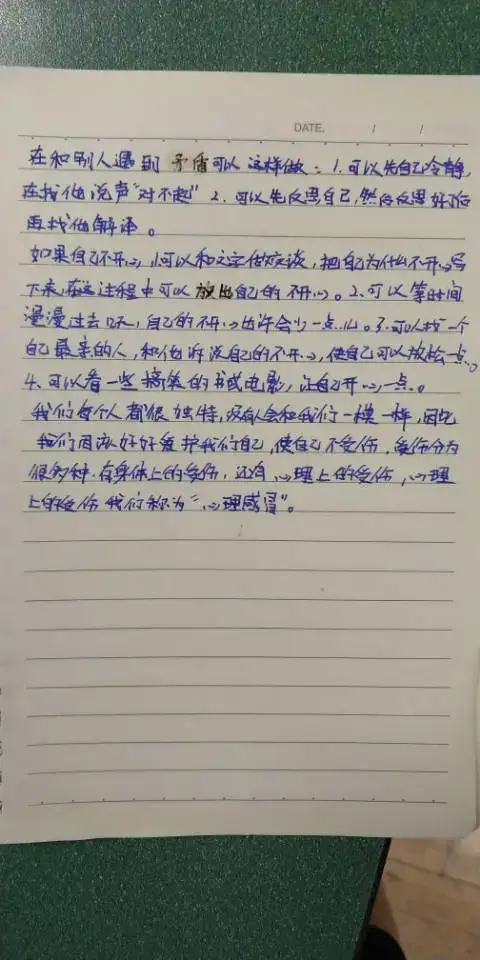 DATE. / /
在和别人遇到矛盾可以这样做：1.可以先自己冷静,
在找他说声“对不起” 2.可以先反思自己,然后反思好了后
再找他解译。
如果自己不开心,1可以和文字做交谈，把自己为什么不开心写
下来,在这过程中可以放出自己的不开心。2.可以等时间
漫漫过去几天，自己的不开心也许会少一点儿。3.可以找一个
自己最亲的人，和他诉说自己的不开心，使自己可以放松一点。
4.可以看一些搞笑的书或电影，让自己开心一点。
我们每个人都很独特,没有人会和我们一模一样，因此
我们因该好好爱护我们自己,使自己不受伤，受伤分为
很多种.有身体上的受伤，还有心理上的受伤，心理
上的受伤我们称为“心理感冒”。